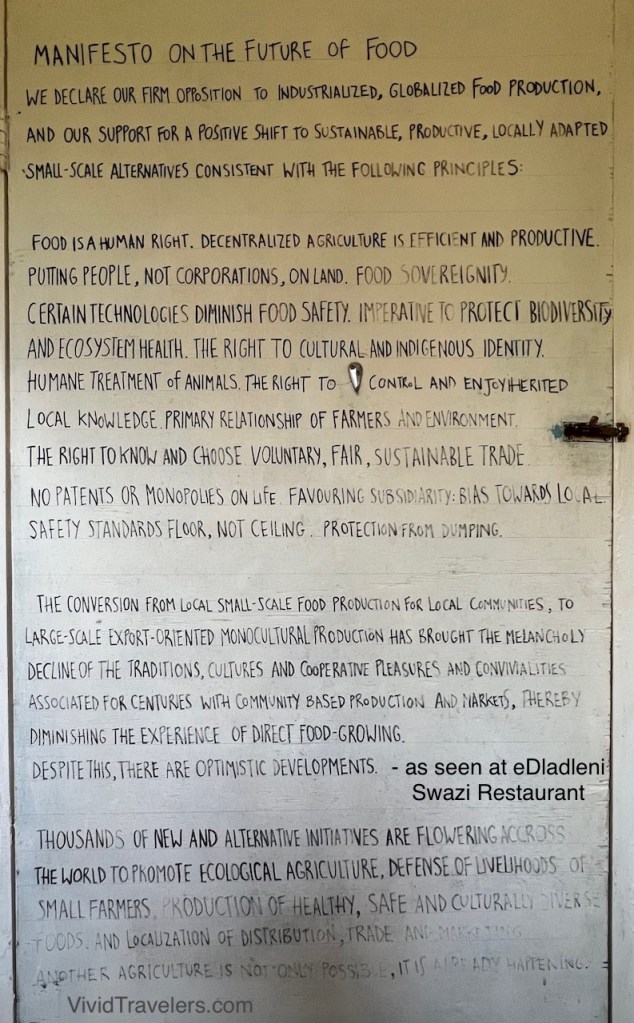 MANIFESTO ON THE FUTURE OF FOOD
WE DECLARE OUR FIRM OPPOSITION TO INDUSTRIALIZED, GLOBALIZED FOOD PRODUCTION,
AND OUR SUPPORT FOR A POSITIVE SHIFT TO SUSTAINABLE, PRODUCTIVE, LOCALLY ADAPTED
SMALL-SCALE ALTERNATIVES CONSISTENT WITH THE FOLLOWING PRINCIPLES:
FOOD IS A HUMAN RIGHT. DECENTRALIZED AGRICULTURE IS EFFICIENT AND PRODUCTIVE.
PUTTING PEOPLE, NOT CORPORATIONS, ON LAND. FOOD SOVEREIGNITY.
CERTAIN TECHNOLOGIES DIMINISH FOOD SAFETY. IMPERATIVE TO PROTECT BIODIVERSITY
AND ECOSYSTEM HEALTH. THE RIGHT TO CULTURAL AND INDIGENOUS IDENTITY.
HUMANE TREATMENT of ANIMALS. THE RIGHT TO CONTROL AND ENJOY IHERITED
LOCAL KNOWLEDGE. PRIMARY RELATIONSHIP OF FARMERS AND ENVIRONMENT.
THE RIGHT TO KNOW AND CHOOSE VOLUNTARY, FAIR, SUSTAINABLE TRADE
NO PATENTS OR MONOPOLIES ON LIFE. FAVOURING SUBSIDIARITY: BIAS TOWARDS LOCAL
SAFETY STANDARDS FLOOR, NOT CEILING. PROTECTION FROM DUMPING.
THE CONVERSION FROM LOCAL SMALL-SCALE FOOD PRODUCTION FOR LOCAL COMMUNITIES, TO
LARGE-SCALE EXPORT-ORIENTED MONOCULTURAL PRODUCTION HAS BROUGHT THE MELANCHOLY
DECLINE OF THE TRADITIONS, CULTURES AND COOPERATIVE PLEASURES AND CONVIVIALITIES
ASSOCIATED FOR CENTURIES WITH COMMUNITY BASED PRODUCTION AND MARKETS, THEREBY
DIMINISHING THE EXPERIENCE OF DIRECT FOOD-GROWING.
DESPITE THIS, THERE ARE OPTIMISTIC DEVELOPMENTS. - as seen at eDladleni
Swazi Restaurant
THOUSANDS OF NEW AND ALTERNATIVE INITIATIVES ARE FLOWERING ACCROSS
THE WORLD TO PROMOTE ECOLOGICAL AGRICULTURE, DEFENSE OF LIVELIHOODS OF
SMALL FARMERS, PRODUCTION OF HEALTHY, SAFE AND CULTURALLY DIVERSE
FOODS. AND LOCALIZATION OF DISTRIBUTION, TRADE AND MARKETING
ANOTHER AGRICULTURE IS NOT ONLY POSSIBLE, IT IS ALREADY HAPPENING.
VividTravelers.com